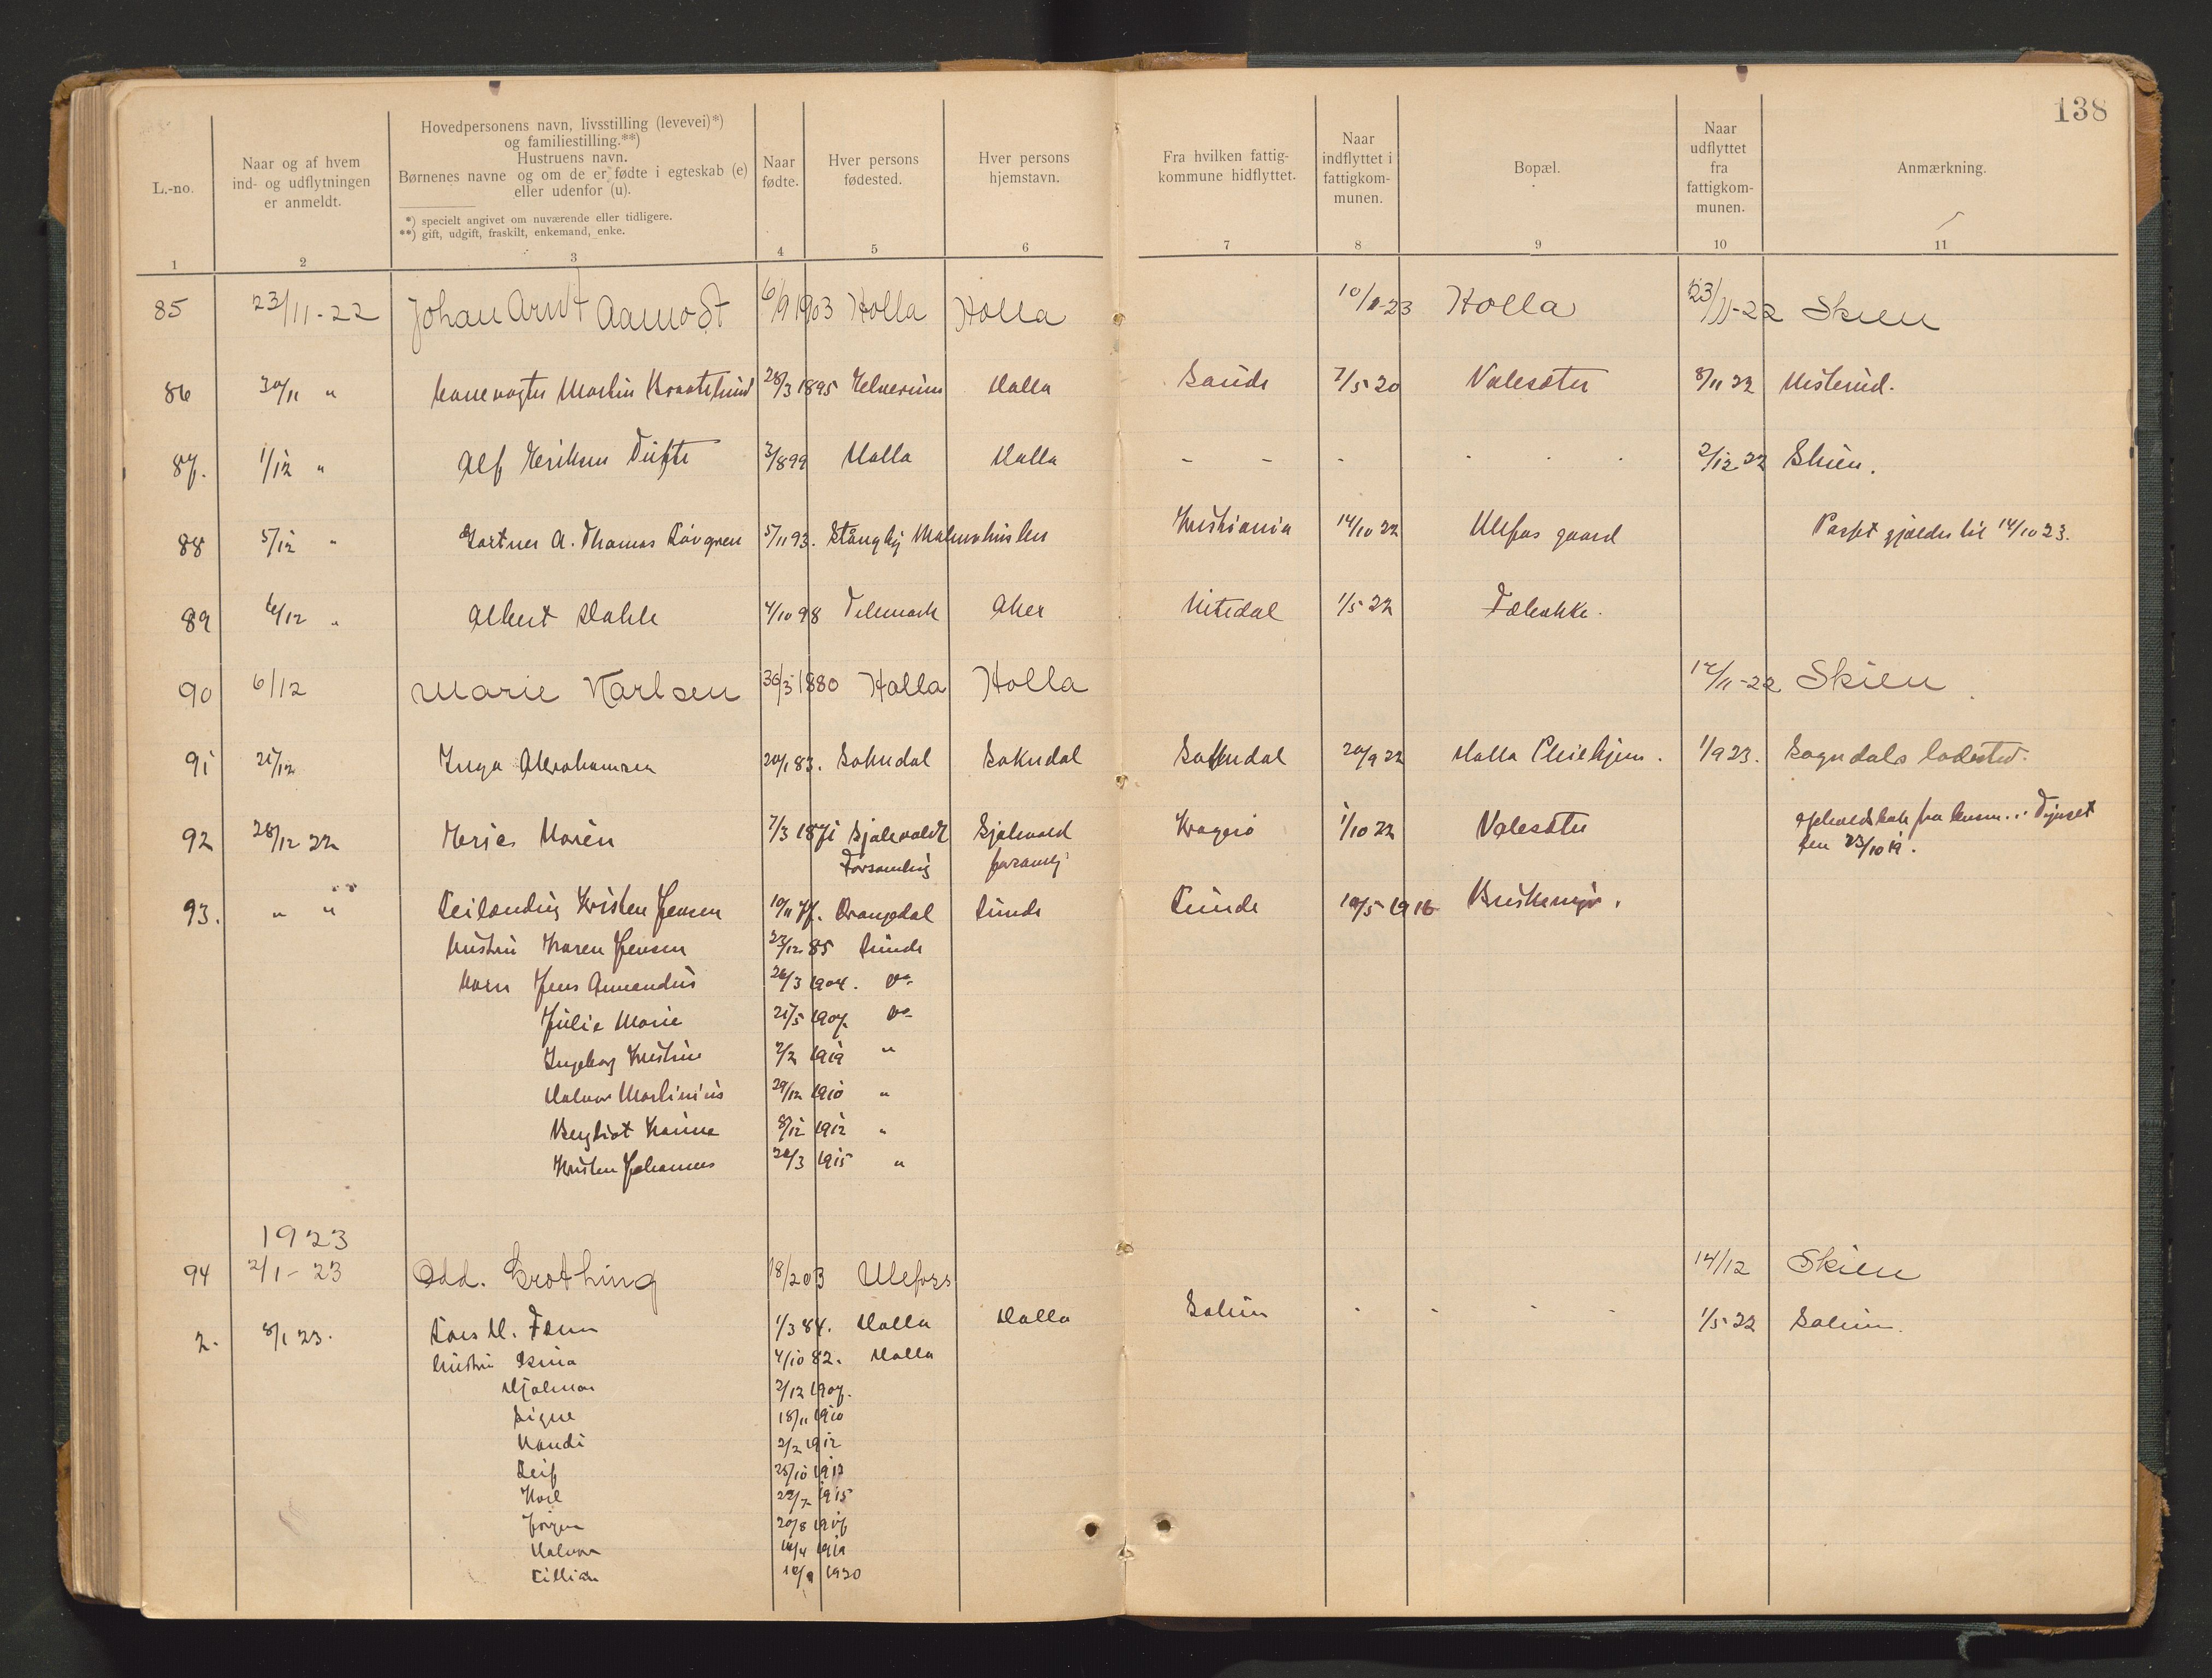 138
L.-no.
Naar og af hvem
ind- og udflytningen
er anmeldt.
Hovedpersonens navn, livsstilling (levevei)*)
og familiestilling.**)
Hustruens navn.
Børnenes navne og om de er fødte i egteskab (e)
eller udenfor (u).
*) specielt angivet om nuværende eller tidligere.
**) gift, udgift, fraskilt, enkemand, enke.
Naar
fødte.
Hver persons
fødested.
Hver persons
hjemstavn.
Fra hvilken fattig-
kommune hidflyttet.
Naar
indflyttet i
fattigkom-
munen.
Bopæl.
Naar
udflyttet
fra
fattigkom-
munen.
Anmærkning.
1 2 3 4 5 6 7 8 9 10 11
85 23/11-22 Johan Arnt Aamodt 6/9 1903 Holla Holla 10/1-23 Holla 23/11-22 Skien
86 30/11 " Martin 28/3 1895 Elverum Holla Saude 7/5 20 Valesæter 8/11 22
87. 1/12 " Alf Eriksen Tufte 3/8 99 Holla Holla - - - - - - 2/12 22 Skien.
88 5/12 " Gartner A. Thomas Løvgren 5/11 93. Stångby Kristiania 14/10 22 Ulefos gaard Passet gjælder til 14/10 23.
89 6/12 " Albert Dahle 4/10 98 Telemark Aker Nitedal 1/5 22
90 6/12 Marie Karlsen 30/5 1880 Holla Holla 12/11-22 Skien
91 21/12 Inga Abrahamsen 20/1 83. Sokndal Sokndal Sokndal 20/9 22 Holla Pleiehjem. 1/9 23. Sogndals ladested.
92 28/12 22 7/3 1871 Kragerø 1/10 22 Valesæter
den 23/10 19.
93. " " Kristen Jensen 10/11 77. Drangedal Lunde Lunde 10/5 1916
Hustru Karen Jensen 23/12 85 Lunde
Børn Jens Amandus 26/3 1904. Do
Julie Marie 21/5 1907. Do
Ingeborg Kristine 7/2 1919 "
Halvor Martinius 29/12 1910 "
Bergliot Karine 8/12 1912 "
Kristen Johannes 24/3 1915 "
1923
94 2/1-23 Odd. Grothing 18/2 03 Ulefoss 14/12 Skien
2. 8/1 23. Lars H. Fenn 1/3 84. Holla Holla Solum - - - - 1/5 22 Solum.
Hustru 4/10 82. Holla
Hjalmar 2/12 1907.
Signe 18/11 1910
Randi 2/2 1912
Leif 25/10 1913
Karl 22/7 1915
Jørgen 20/8 1917
Halvor
Lillian 1920